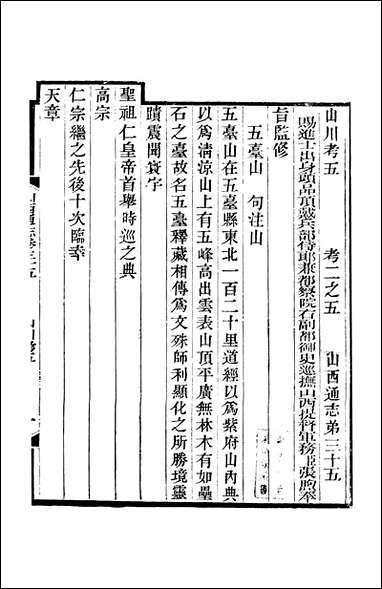 山川考五　考二之五　山西通志第三十五
賜進士出身頭品頂戴兵部侍郎兼都察院右副都御史巡撫山西提督軍務臣張煦奉
旨監修
五臺山　句注山
五臺山在五臺縣東北一百二十里道經以爲紫府山內典
以爲清涼山上有五峰高出雲表山頂平廣無林木有如壘
石之臺故名五臺釋藏相傳爲文殊師利顯化之所勝境靈
蹟震聞寰宇
聖祖仁皇帝首舉時巡之典
高宗
仁宗繼之先後十次臨幸
天章